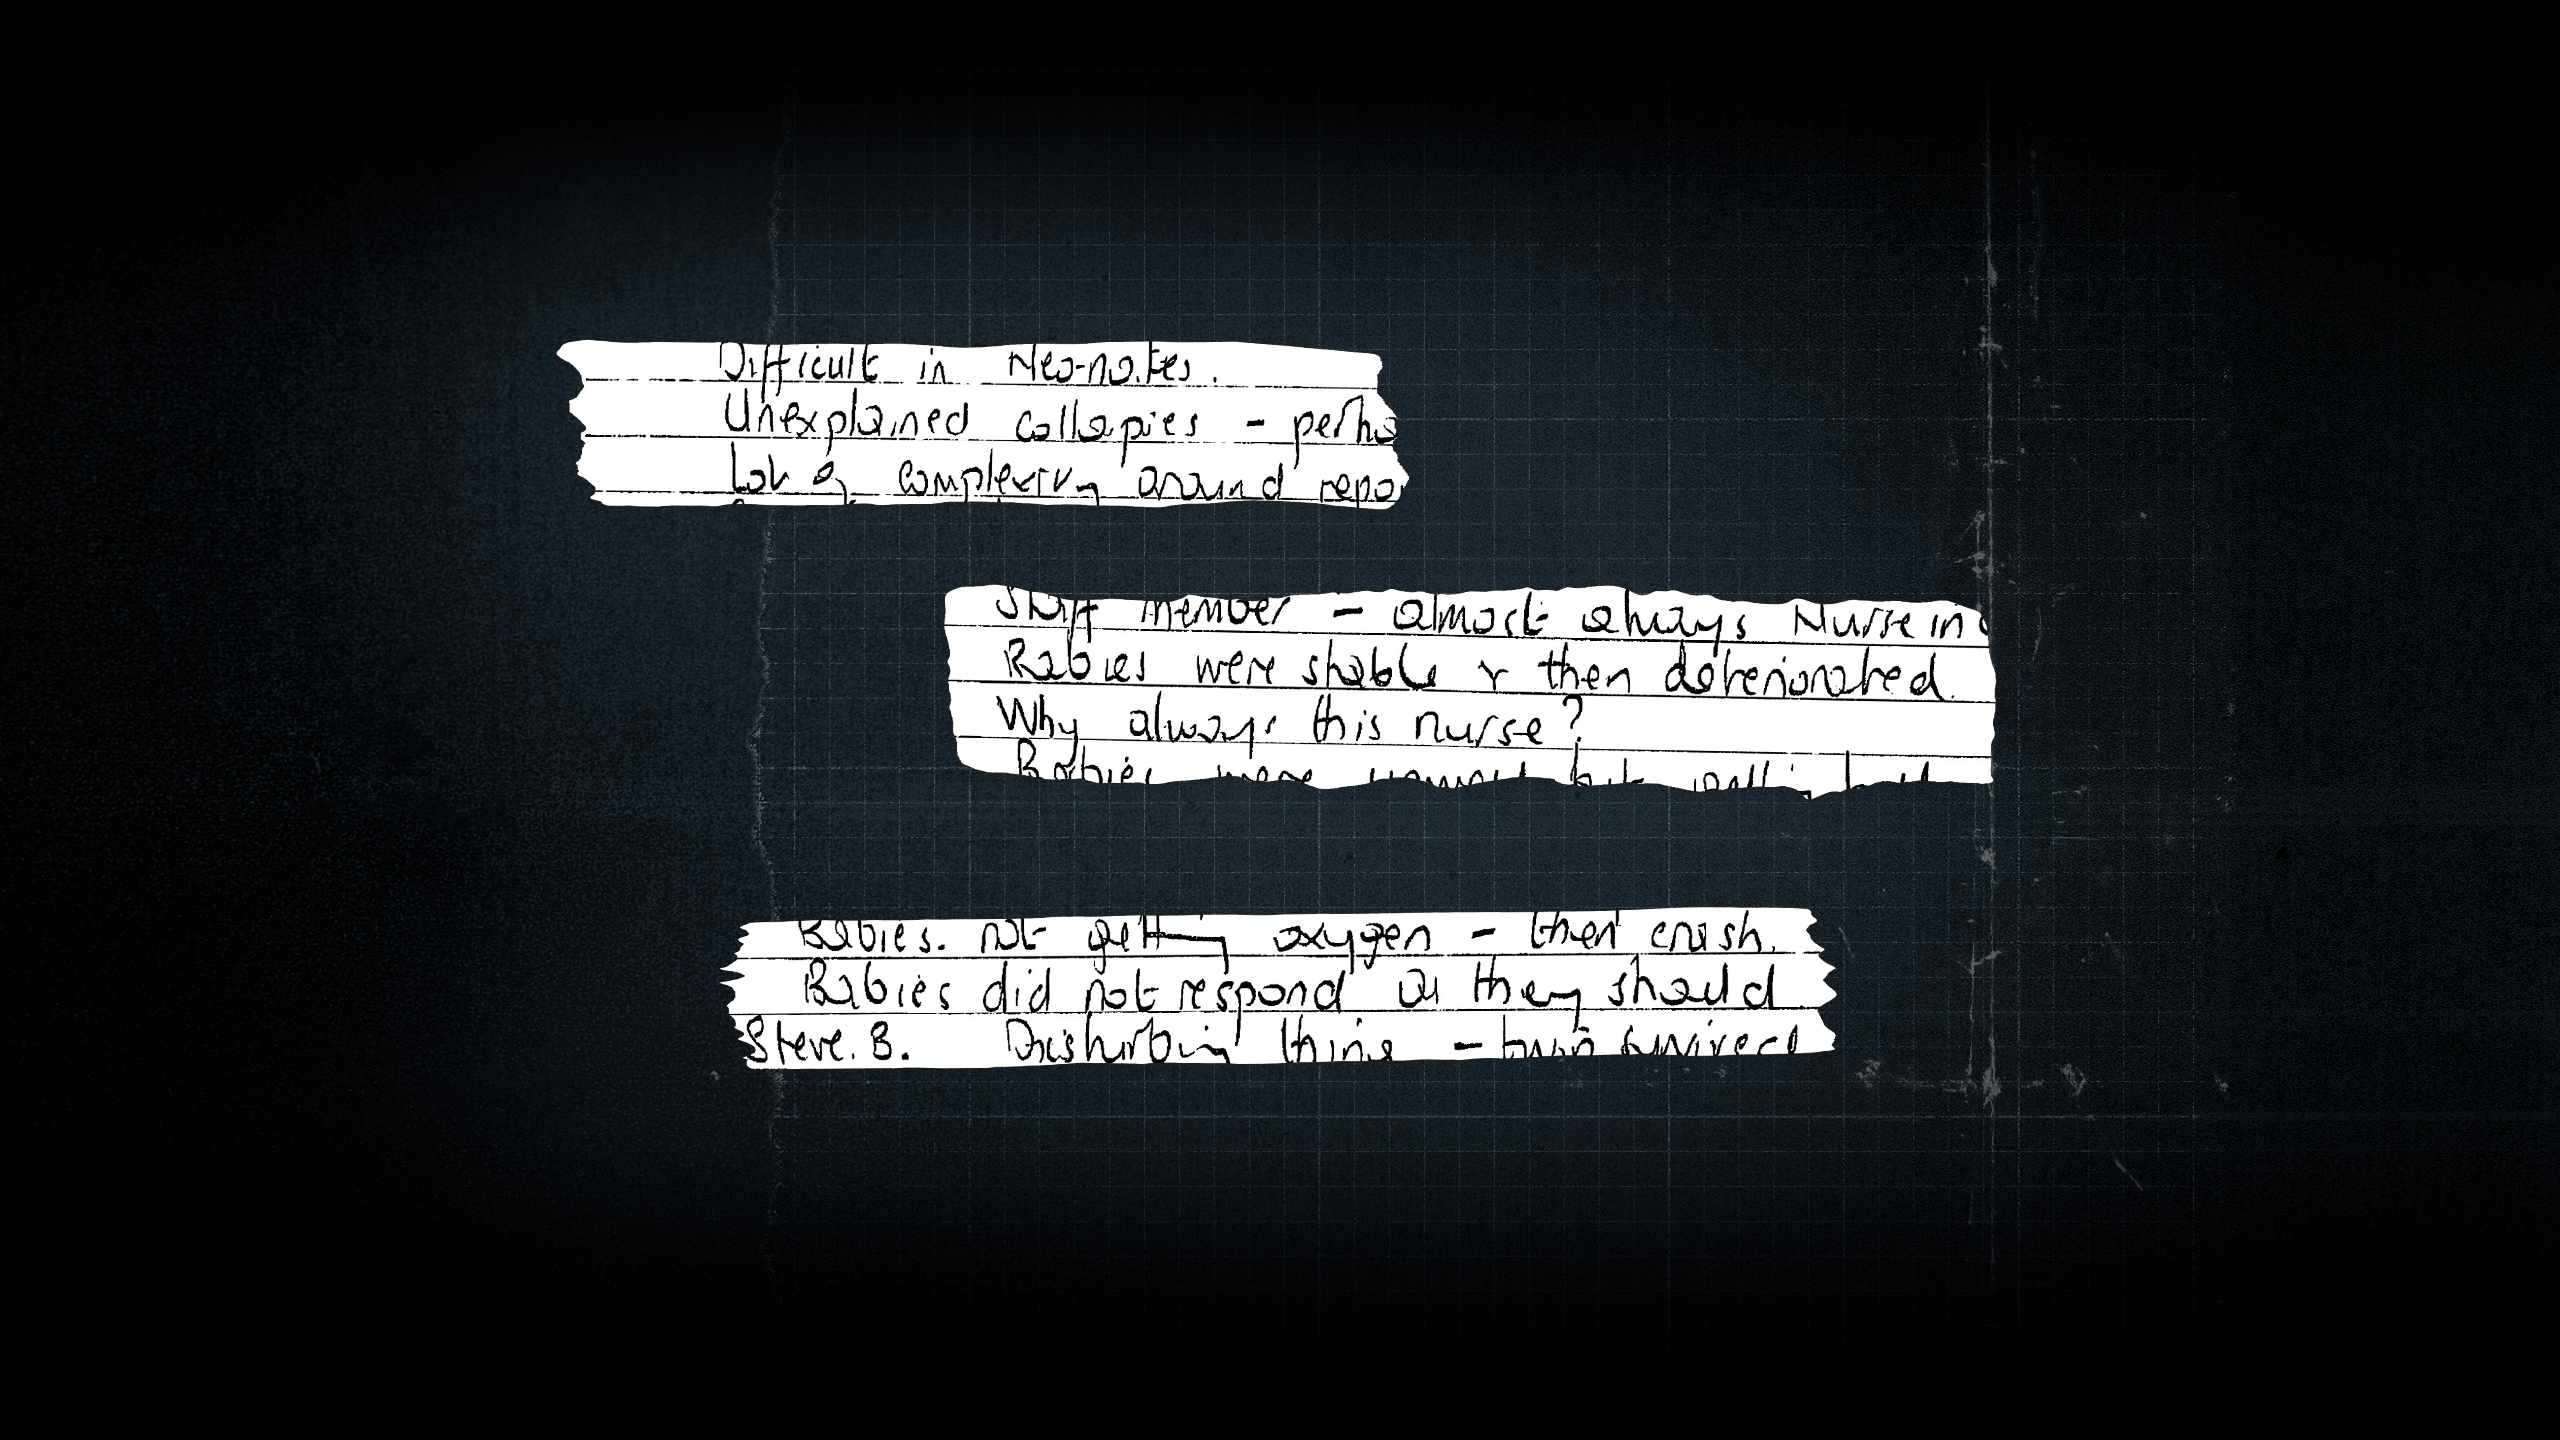 Difficult in Neo-nates.
Unexplained collapies - perha
Lot of complexity around repo
Staff member - almost always Nurse in c
Babies were stable & then deteriorated.
Why always this nurse?
Babies were
Babies. not getting oxygen - then crash.
Babies did not respond as they should
Steve. B. Disturbing thing - twin survived